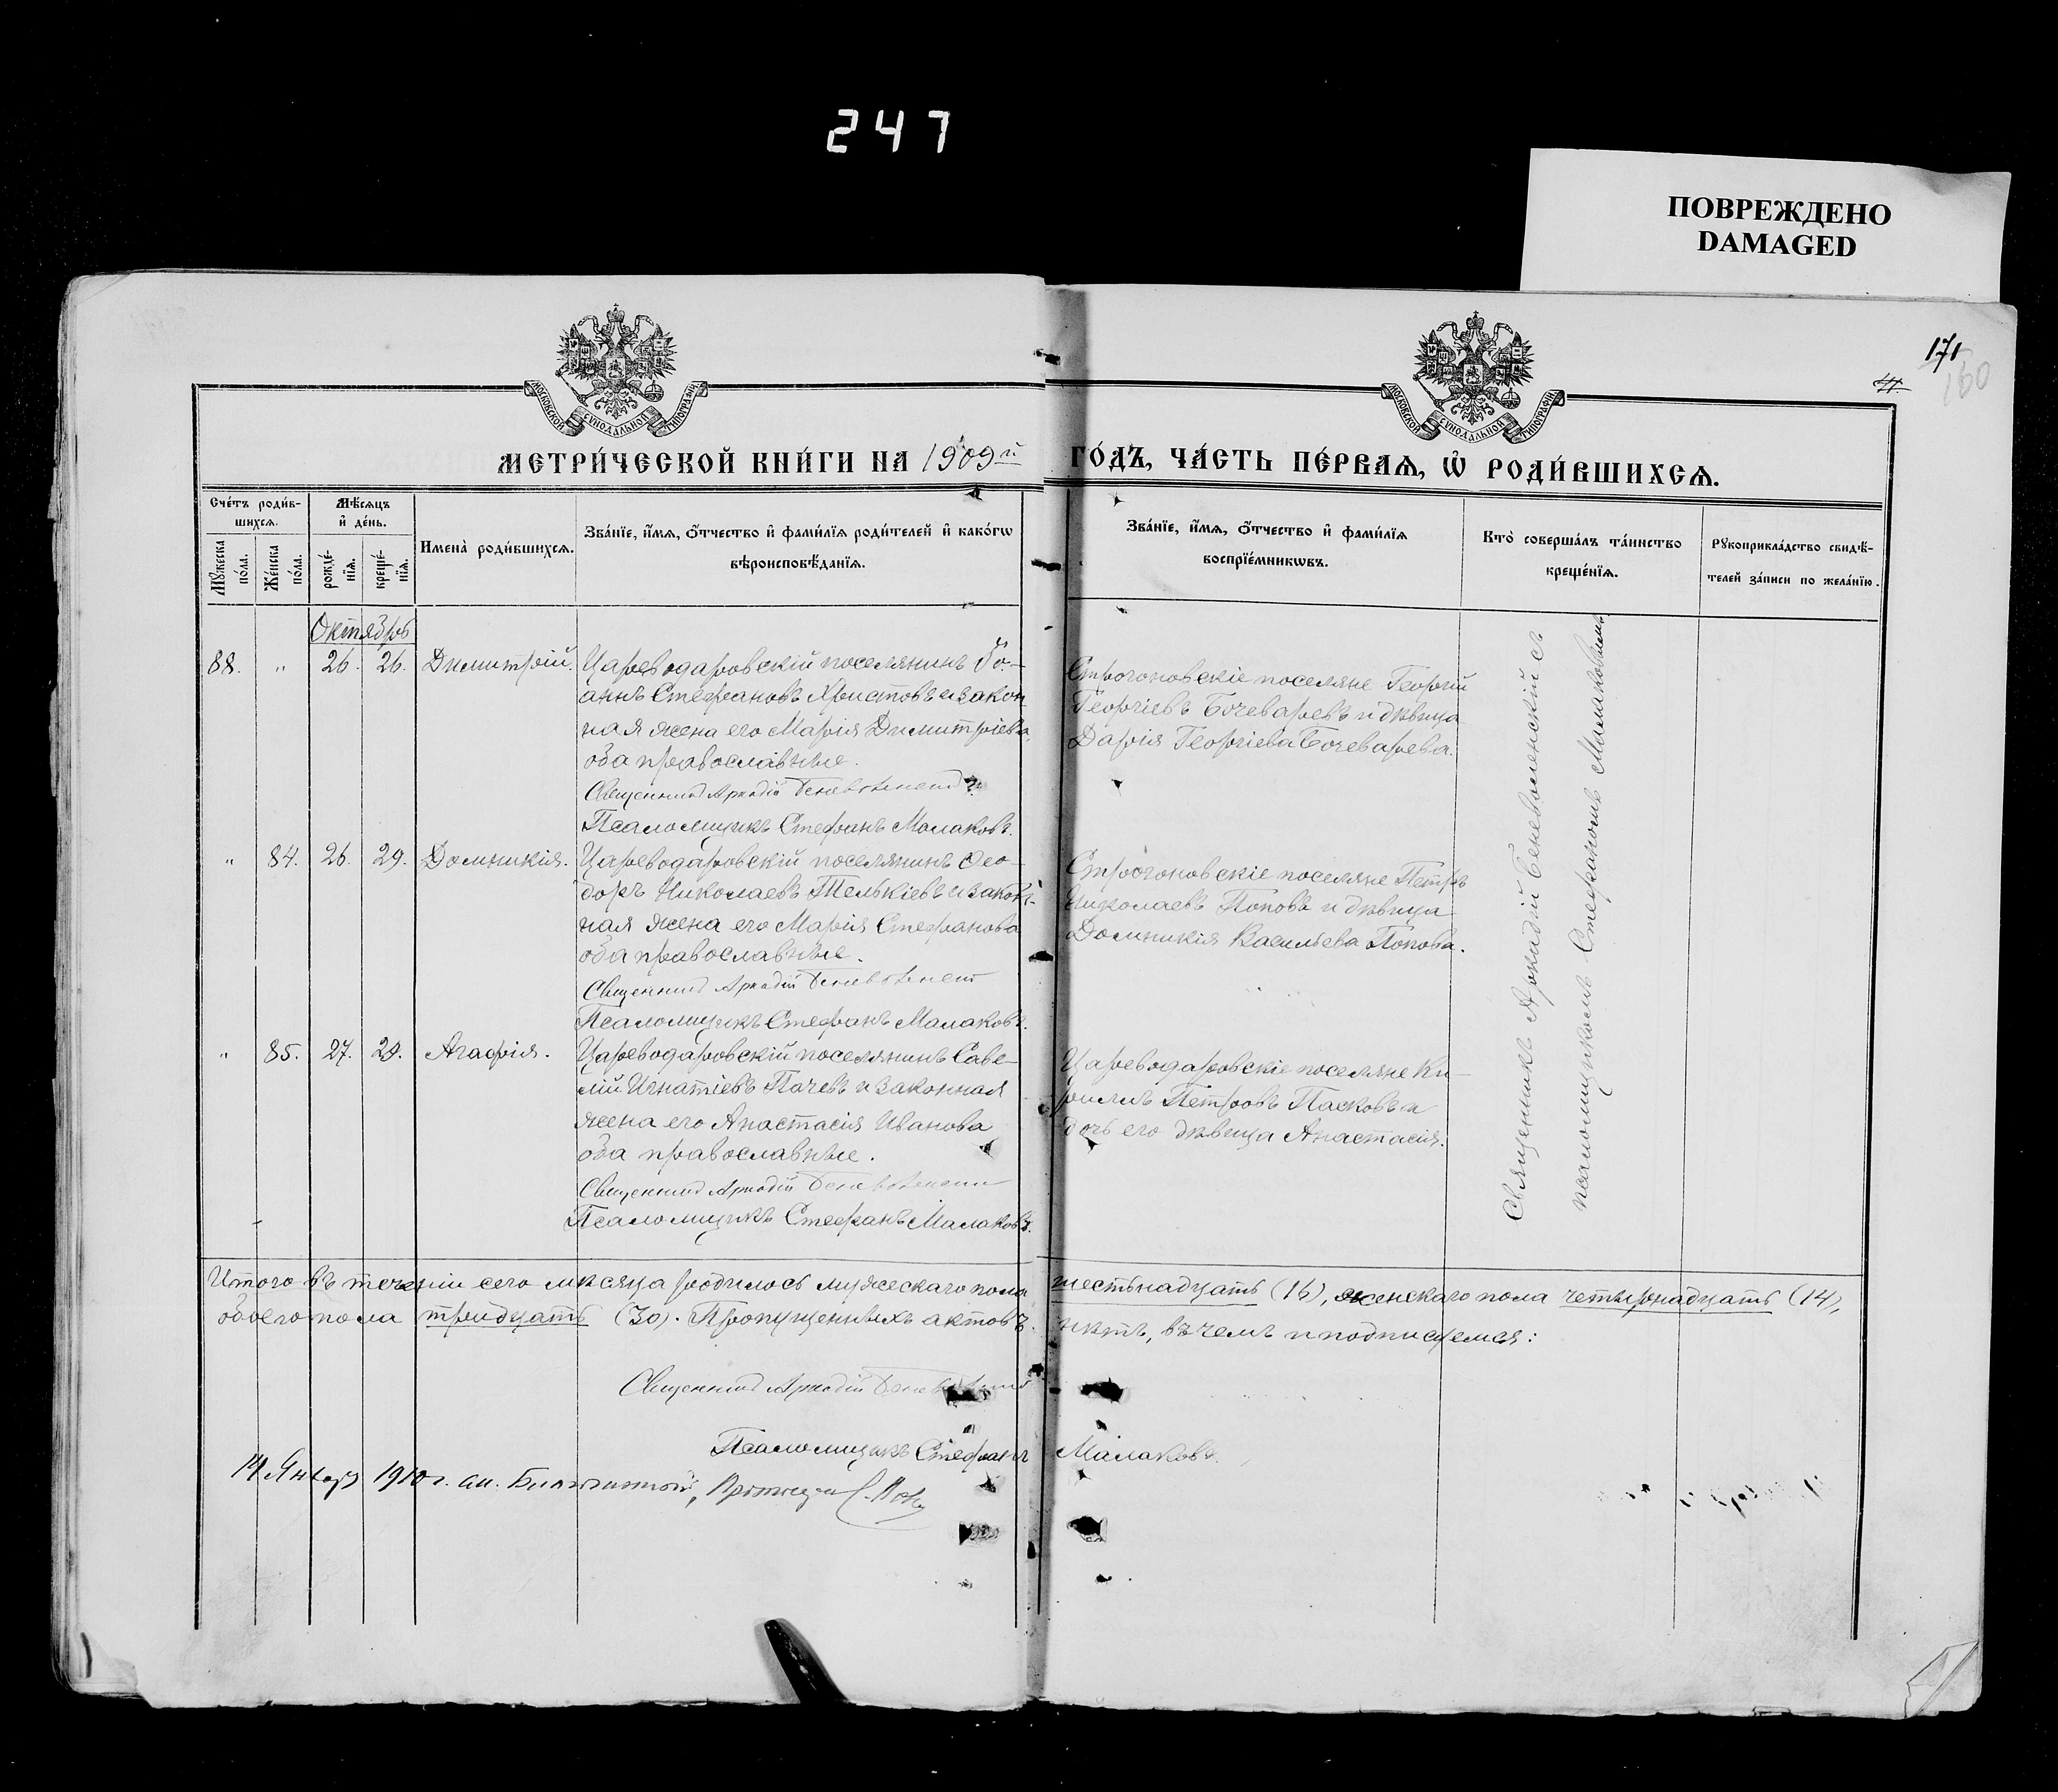 247
ПОВРЕЖДЕНО
DAMAGED
171
160
МОСКОВСКОЙ СѴНОДАЛЬНОЙ ТИПОГРАФІИ
МОСКОВСКОЙ СѴНОДАЛЬНОЙ ТИПОГРАФІИ
МЕТРИ́ЧЕСКОЙ КНИ́ГИ НА 1909й
ГО́ДЪ, ЧА́СТЬ ПЕ́РВАѦ, Ѡ҆ РОДИ́ВШИХСѦ.
Сче́тъ роди́в-
шихсѧ.
Мѣ́сѧцъ
и҆ де́нь.
Мꙋ́жеска
по́ла.
Же́нска
по́ла.
рожде́-
нїѧ.
креще́-
нїѧ.
Имена̀ роди́вшихсѧ.
Зва́нїе, и҆́мѧ, ѻ҆́тчество и҆ фами́лїѧ роди́телей и҆ како́гѡ
вѣроисповѣ́данїѧ.
Зва́нїе, и҆́мѧ, ѻ҆́тчество и҆ фами́лїѧ
воспрїе́мникѡвъ.
Кто̀ соверша́лъ та́инство
креще́нїѧ.
Рꙋкоприкла́дство свидѣ́-
телей за́писи по жела́нїю.
Октябрь
88. " 26. 26. Димитрій. Царевода­ровскій поселянинъ Іо-
аннъ Стефановъ Христовъ и закон
ная жена его Марія Димитріева,
оба православные.
Священникъ Аркадій Беневоленскій
Псаломщикъ Стефанъ Малаковъ.
Строгоновскіе поселяне Георгій
Георгіевъ Бочеваревъ и дѣвица
Дарія Георгіева Бочеварева.
" 84. 26. 29. Домникія. Царевода­ровскій поселянинъ Ѳео-
доръ Николаевъ Телькіевъ и закон-
ная жена его Марія Стефанова
оба православные.
Священникъ Аркадій Беневоленскій
Псаломщикъ Стефанъ Малаковъ.
Строгоновскіе поселяне Петръ
Николаевъ Поповъ и дѣвица
Домникія Васильева Попова.
" 85. 27. 29. Агафія. Царевода­ровскій поселянинъ Саве-
лій Игнатіевъ Пачевъ и законная
жена его Анастасія Иванова
оба православные.
Священникъ Аркадій Беневоленскій
Псаломщикъ Стефанъ Малаковъ.
Царевода­ровскіе поселяне Ки-
риллъ Петровъ Пасковъ и
дочь его дѣвица Анастасія.
Священникъ Аркадій Беневоленскій съ
псаломщикомъ Стефаномъ Малаковымъ
Итого въ теченіи сего мѣсяца родилось мужескаго пола шестьнадцать (16), женскаго пола четырнадцать (14),
обоего пола тридцать (30). Пропущенныхъ актовъ нѣтъ, въ чемъ и подписуемся:
Священникъ Аркадій Беневоленскій
Псаломщикъ Стефанъ Малаковъ.
14 Января 1910 г.